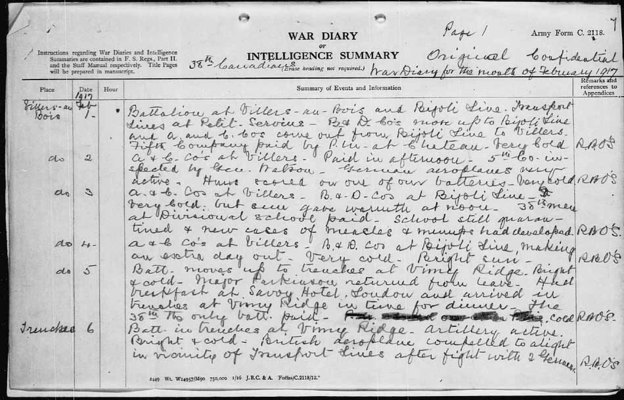 Page 1
7
WAR DIARY
OR
INTELLIGENCE SUMMARY
(Erase heading not required.)
Army Form C. 2118.
Instructions regarding War Diaries and Intelligence
Summaries are contained in F. S. Regs., Part II.
and the Staff Manual respectively. Title Pages
will be prepared in manuscript.
38th Canadians
Original Confidential
War Diary for the month of February 1917
Place
Date
Hour
Summary of Events and Information
Remarks and
references to
Appendices
1917
Villers-au-Bois
Feb 1.
Battalion at Villers-au-Bois and Bijoli Line. Transport
Lines at Petit-Servins - B & D. Co's move up to Bijoli Line
and A. and C. Co's come out from Bijoli Line to Villers.
Fifth Company paid by P.M. at Chateau. Very cold
do 2
A & C. Co's at Villers - Paid in afternoon - 5th Co. in-
spected by Gen. Watson - German aeroplanes very
active - Huns scored on one of our batteries - Very cold
do 3
A & C. Co's at Villers - B & D. Co's at Bijoli Line -
Very cold, but sun gave warmth at noon. 38th men
at Divisional School paid - School still quaran-
tined & new cases of measles & mumps had developed
do 4
A & C Co's at Villers - B & D. Cos at Bijoli Line, making
an extra day out - Very cold - Bright sun -
do 5
Batt. moves up to trenches at Vimy Ridge. Bright
& cold - Major Parkinson returned from leave. Had
breakfast at Savoy Hotel - London and arrived in
trenches at Vimy Ridge in time for dinner - The
38th the only batt. paid - Cold
Trenches 6
Batt. in trenches at Vimy Ridge - Artillery active
Bright & cold - British aeroplane compelled to alight
in vicinity of Transport Lines after fight with 2 Germans.